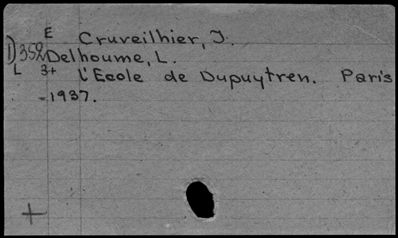 E Cruveilhier, J.
D352 Delhoume, L.
L 3+ L'Ecole de Dupuytren. Paris
-1937.
+